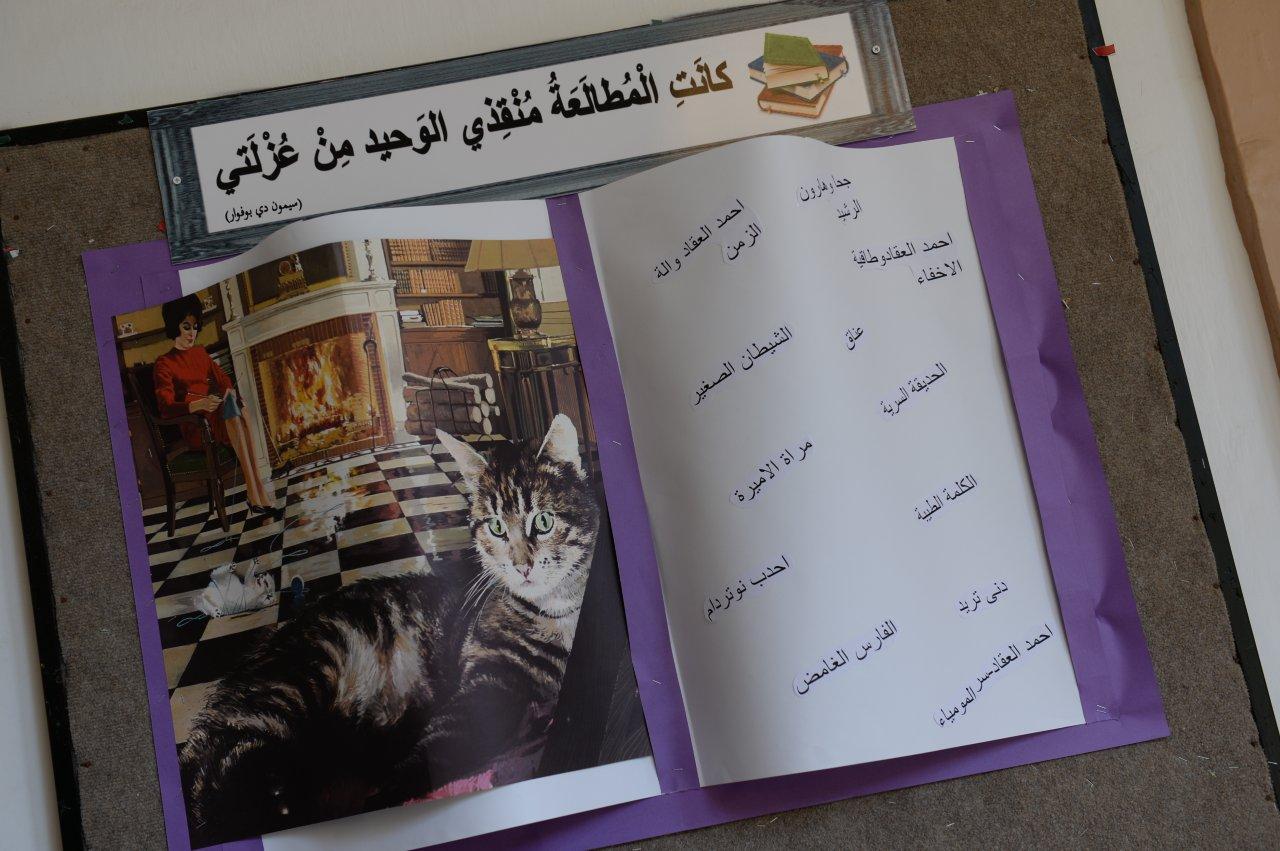 كانَتِ الْمُطالَعَةُ مُنْقِذي الوَحيد مِنْ عُزْلَتي
(سيمون دي بوفوار)
جحا وهارون
الرشيد
احمد العقاد والة
الزمن
احمد العقادوطاقية
الاخفاء
عناق
الشيطان الصغير
الحديقة السرية
مراة الاميرة
الكلمة الطيبة
احدب نوتردام
دنى تريد
الفارس الغامض
احمد العقادسر المومياء